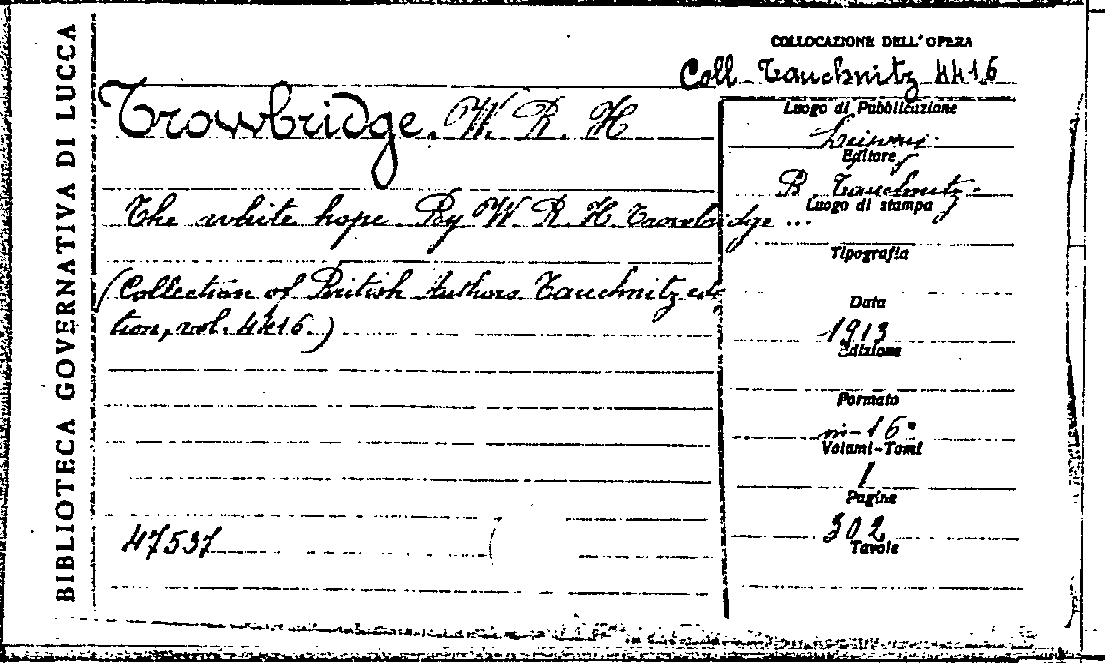 BIBLIOTECA GOVERNATIVA DI LUCCA
COLLOCAZIONE DELL'OPERA
Coll. Tauchnitz 4416
Trowbridge. W. R. H
The white hope. By W. R. H. Trowbridge ...
(Collection of British Authors Tauchnitz edi-
tion, vol. 4416.)
47537
Luogo di Pubblicazione
Leipzig
Editore
B. Tauchnitz
Luogo di stampa
Tipografia
Data
1913
Edizione
Formato
in-16°
Volumi-Tomi
1
Pagine
302
Tavole